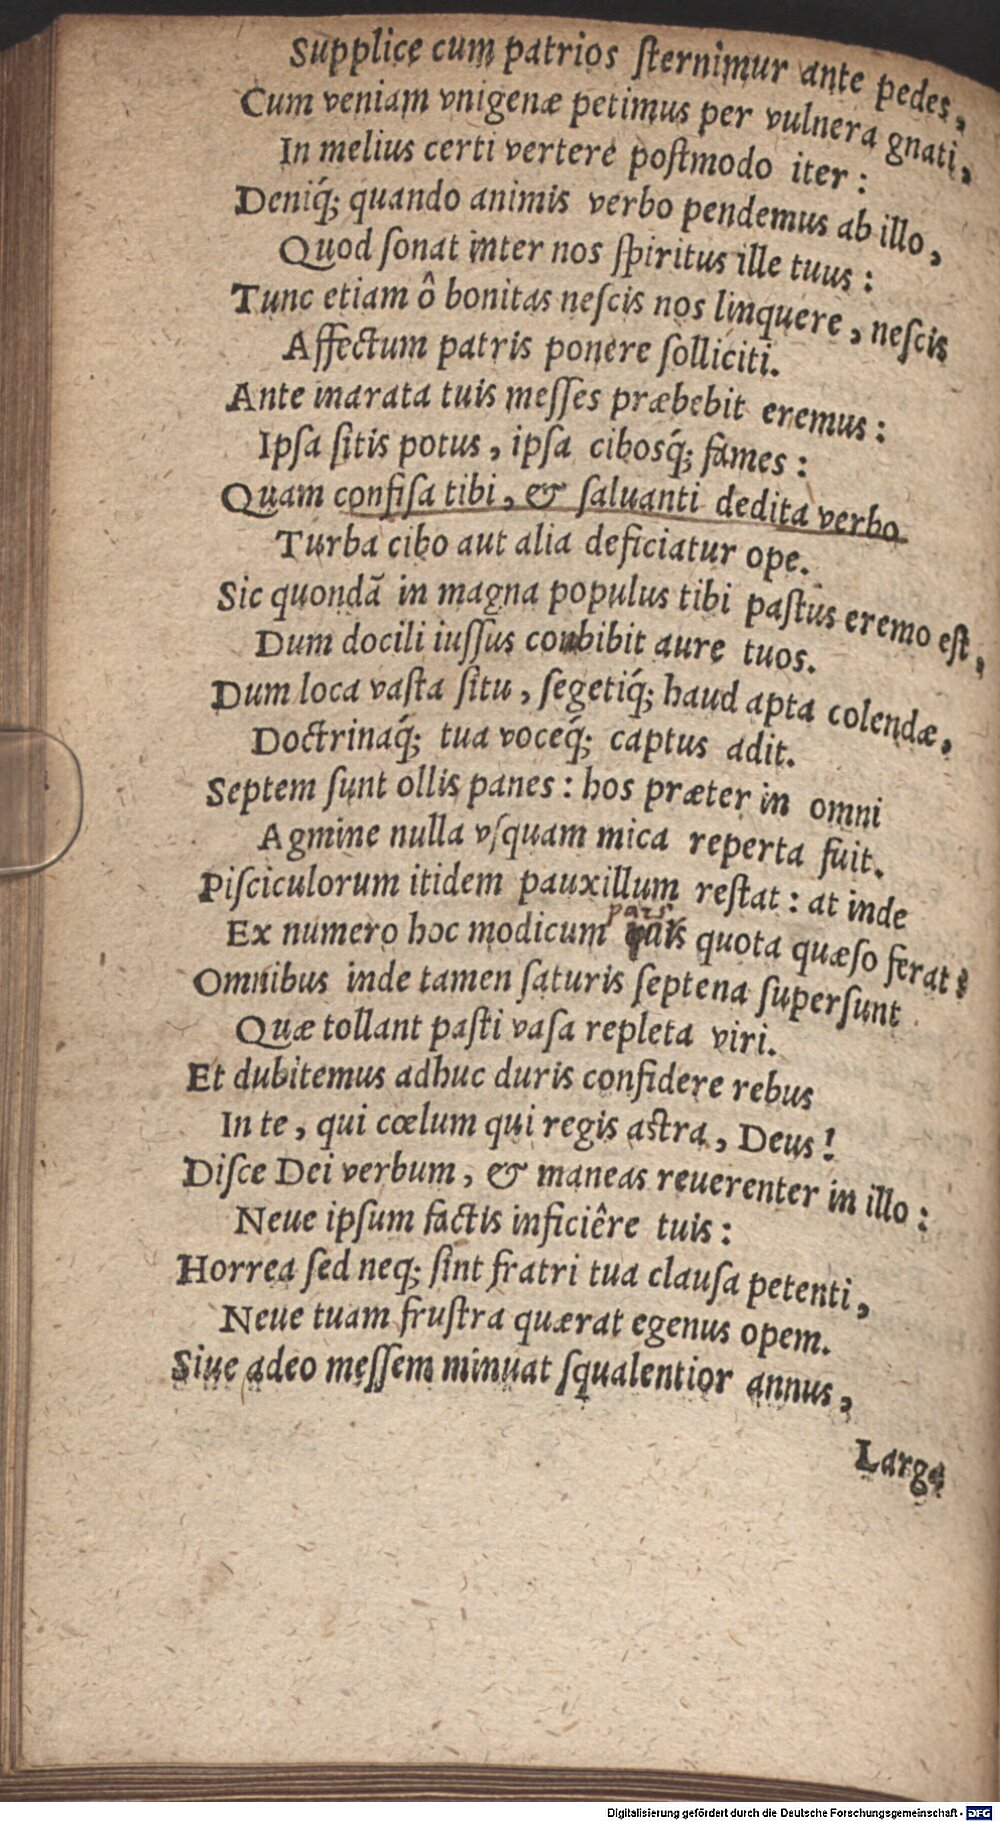 Supplice cum patrios ſternimur ante pedes,
Cum veniam vnigenæ petimus per vulnera gnati,
In melius certi vertere poſtmodo iter:
Deniq́; quando animis verbo pendemus ab illo,
Quod ſonat inter nos ſpiritus ille tuus:
Tunc etiam ô bonitas neſcis nos linquere, neſcis
Affectum patris ponere ſolliciti.
Ante inarata tuis meſſes præbebit eremus:
Ipſa ſitis potus, ipſa cibosq́; fames:
Quam confiſa tibi, & ſaluanti dedita verbo
Turba cibo aut alia deficiatur ope.
Sic quondā in magna populus tibi paſtus eremo eſt,
Dum docili iuſſus conbibit aure tuos.
Dum loca vaſta ſitu, ſegetiq́; haud apta colendæ,
Doctrinaq́; tua voceq́; captus adit.
Septem ſunt ollis panes: hos præter in omni
Agmine nulla vſquam mica reperta fuit.
Piſciculorum itidem pauxillum reſtat: at inde
pars
Ex numero hoc modicum quis quota quæſo ferat?
Omnibus inde tamen ſaturis ſeptena ſuperſunt
Quæ tollant paſti vaſa repleta viri.
Et dubitemus adhuc duris confidere rebus
In te, qui cœlum qui regis aſtra, Deus!
Diſce Dei verbum, & maneas reuerenter in illo:
Neue ipſum factis inficiêre tuis:
Horrea ſed neq; ſint fratri tua clauſa petenti,
Neue tuam fruſtra quærat egenus opem.
Siue adeo meſſem minuat ſqualentior annus,
Larga
Digitalisierung gefördert durch die Deutsche Forschungsgemeinschaft - DFG